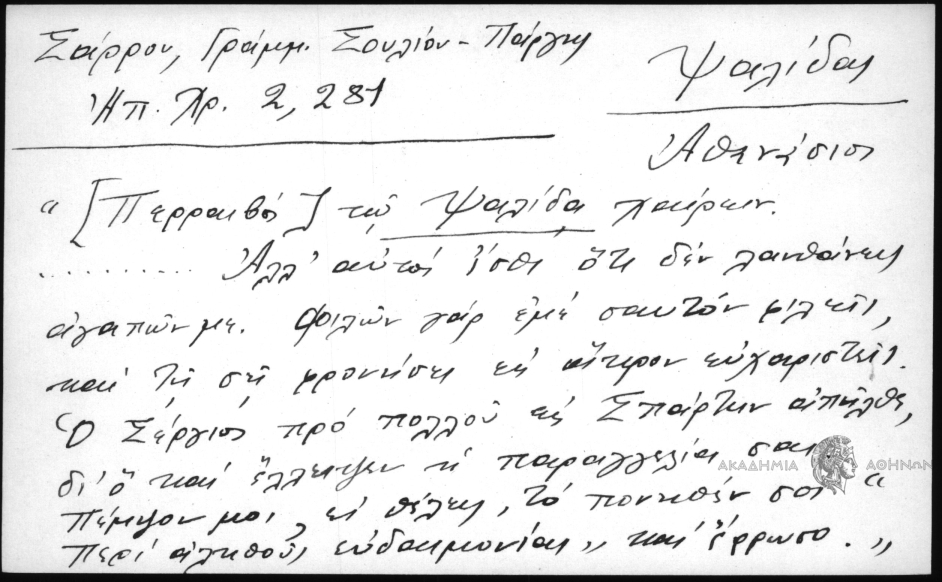 Σάρρου, Γράμμ. Σουλίου - Πάργης
Ἠπ. Χρ. 2, 281
Ψαλίδας
Ἀθανάσιος
" [Περραιβός] τῷ Ψαλίδᾳ χαίρειν.
.......... Ἀλλ' αὐτός ἴσθι ὅτι δέν λανθάνεις
ἀγαπῶν με. Φιλῶν γάρ ἐμέ σαυτόν φιλεῖς,
καί τῇ σῇ φρονήσει εἰς ἄπειρον εὐχαριστεῖς.
Ὁ Σέργιος πρό πολλοῦ εἰς Σπάρτην ἀπῆλθε,
δι' ὅ καί ἔλλειψεν ἡ παραγγελία σου
Πέμψον μοι, εἰ θέλεις, τό πονηθέν σοι "
Περί ἀληθοῦς εὐδαιμονίας" καί ἔρρωσο."
ΑΚΑΔΗΜΙΑ ΑΘΗΝΩΝ